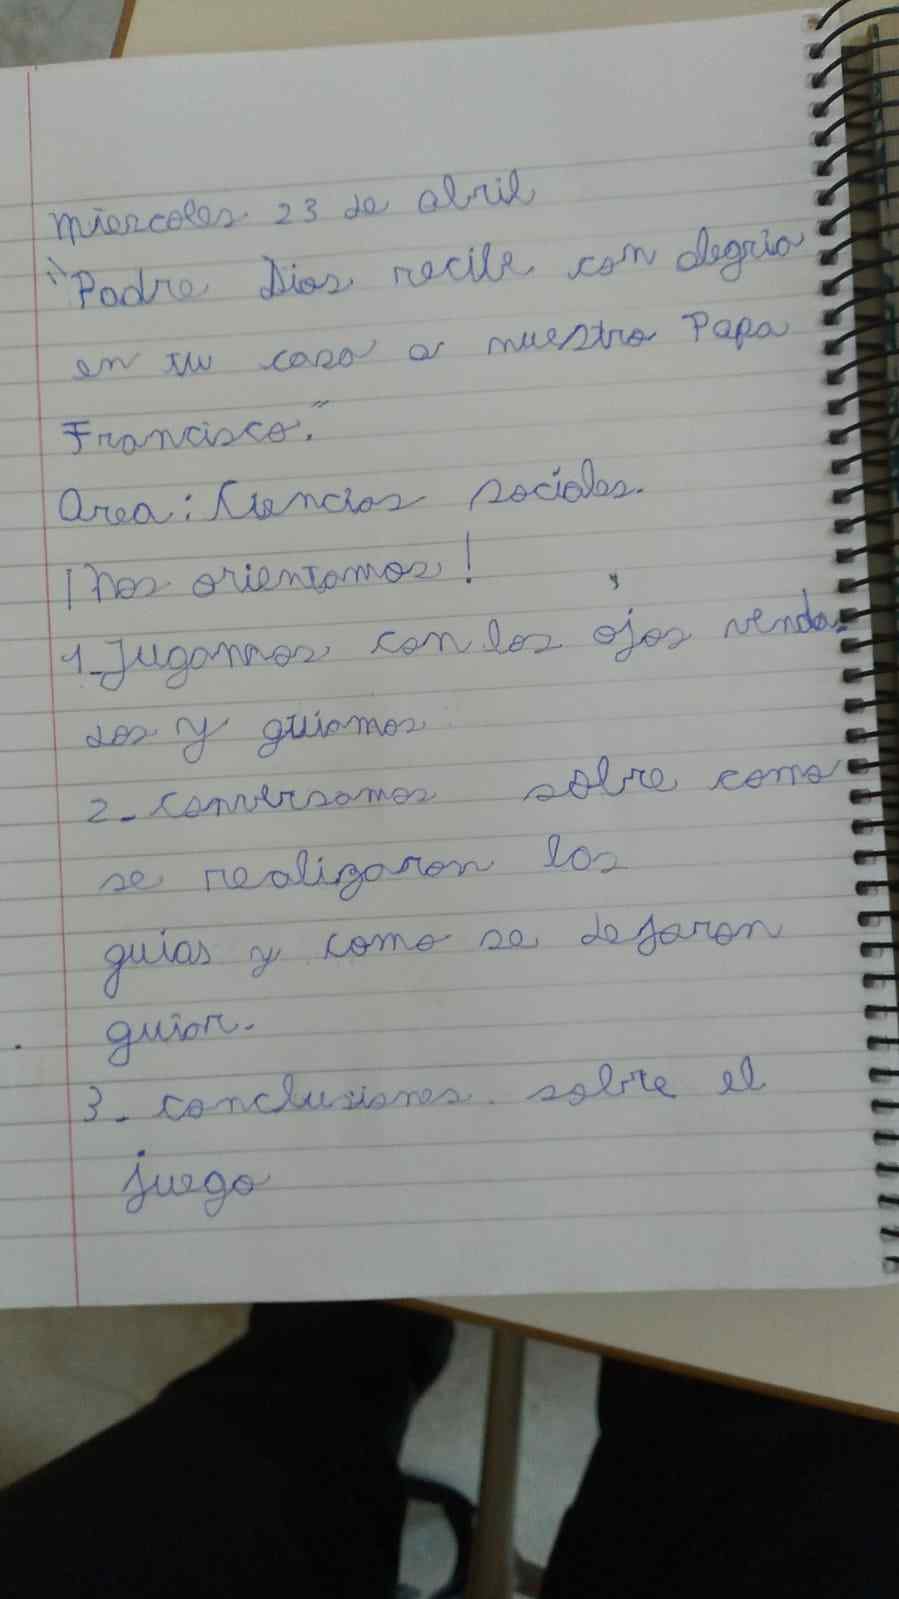 Miercoles 23 de abril
"Padre Dios recibe con alegria
en tu casa a nuestro Papa
Francisco."
Area: Ciencias sociales.
¡Nos orientamos!
1_Jugamos con los ojos venda-
dos y guiamos
2_conversamos sobre como
se realizaron las
guias y como se dejaron
guiar.
3_conclusiones sobre el
juego